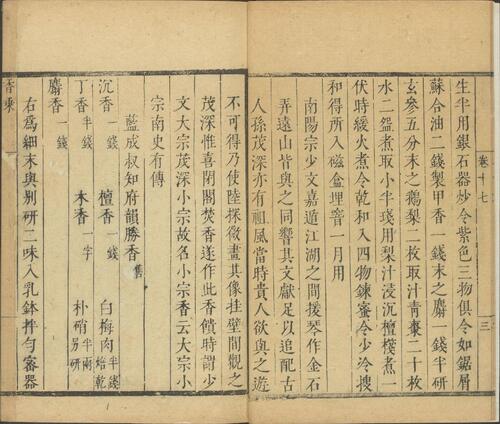 生半用銀石器炒令紫色三物俱令如鋸屑
蘇合油二錢製甲香一錢末之麝一錢半研
玄參五分末之鵝梨二枚取汁青棗二十枚
水二盌煮取小半琖用梨汁浸沉檀棧煮一
伏時緩火煮令乾和入四物鍊蜜令少冷搜
和得所入磁盒埋窨一月用
南陽宗少文嘉遁江湖之間援琴作金石
弄遠山皆與之同響其文獻足以追配古
人孫茂深亦有祖風當時貴人欲與之遊
卷十七
三
不可得乃使陸探微畫其像挂壁間觀之
茂深惟喜閉閣焚香遂作此香饋時謂少
文大宗茂深小宗故名小宗香云大宗小
宗南史有傳
藍成叔知府韻勝香 舊
沉香 一錢 檀香 一錢 白梅肉 半錢焙乾
丁香 半錢 木香 一字 朴硝 半兩另研
麝香 一錢
右為細末與別研二味入乳鉢拌勻密器
香乘